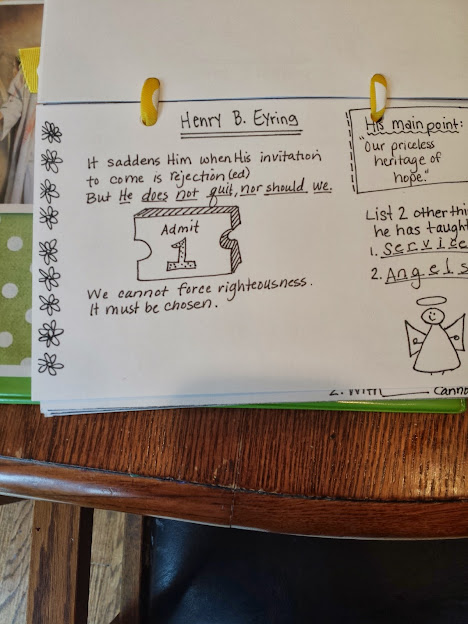 Henry B. Eyring
It saddens Him when His invitation
to come is rejection(ed)
But He does not quit, nor should we.
Admit
1
We cannot force righteousness.
It must be chosen.
His main point:
"Our priceless
heritage of
hope."
List 2 other
he has taught
1. Service
2. Angels
2. With cann